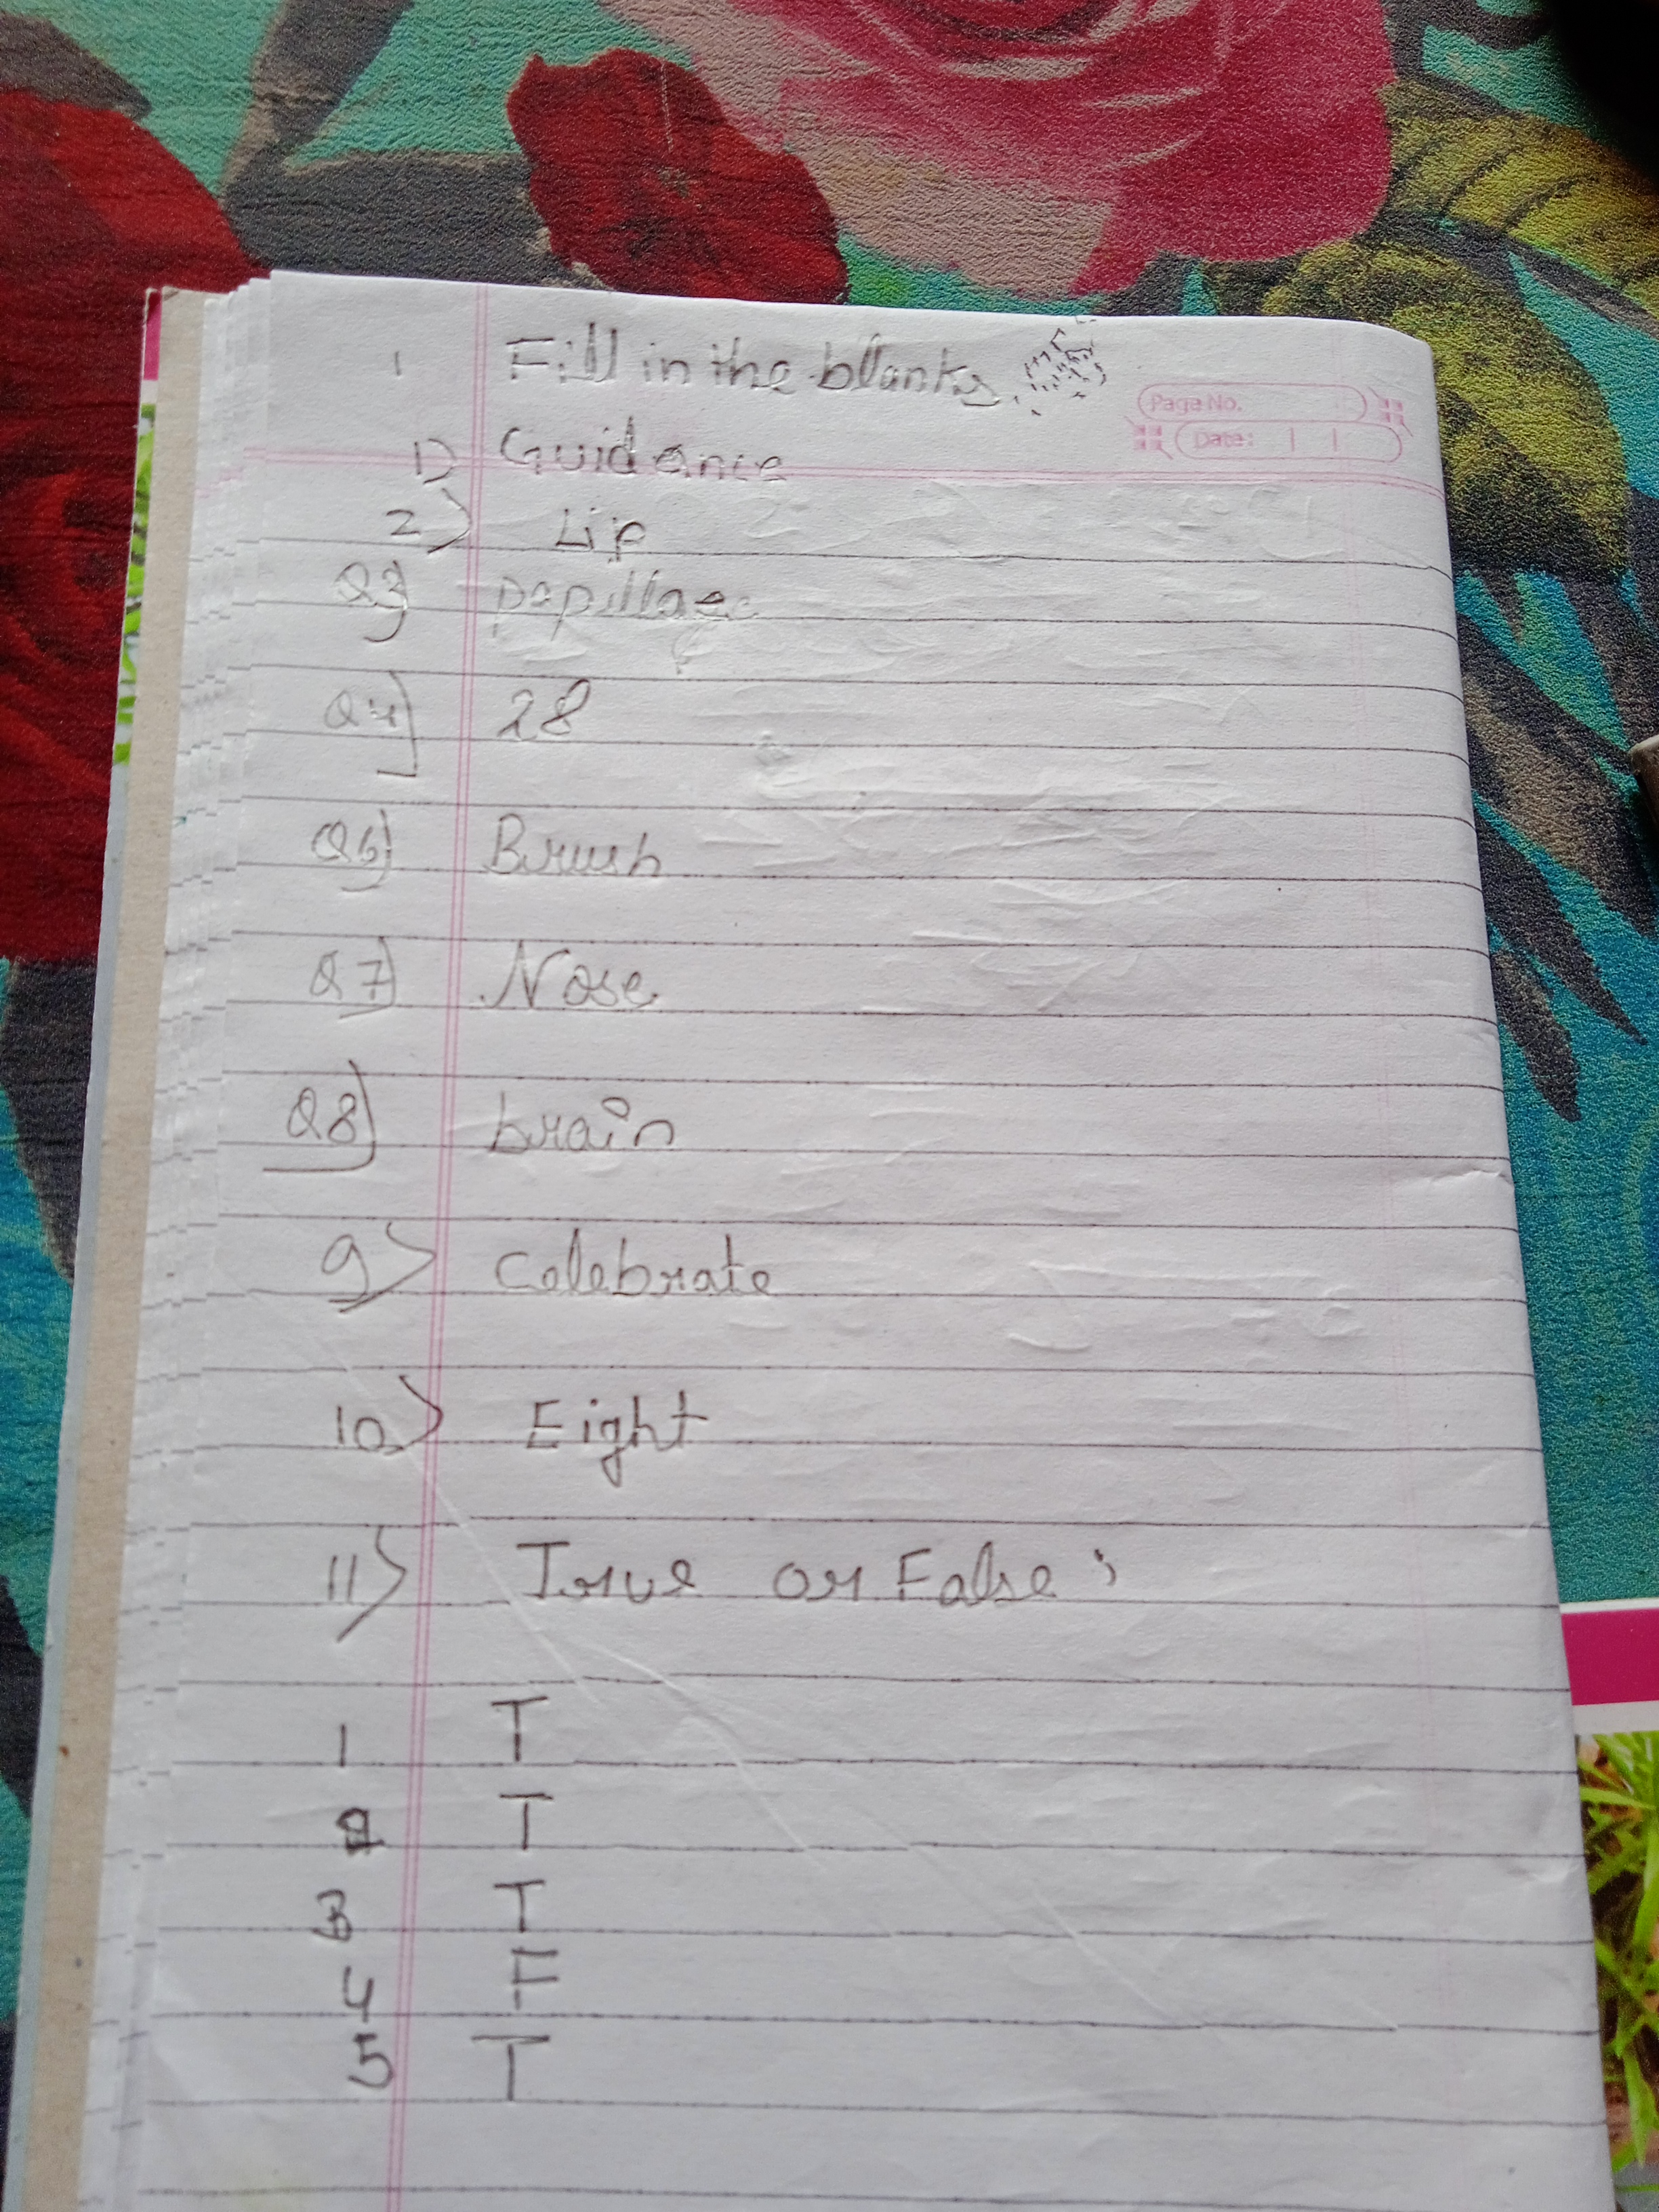 1 Fill in the blanks
Page No.
Date:
1) Guidance
2) Lip
Q3) papillae
Q4) 28
Q6) Brush
Q7) Nose
Q8) brain
9) Celebrate
10) Eight
11) True or False :
1 T
2 T
3 T
4 F
5 T